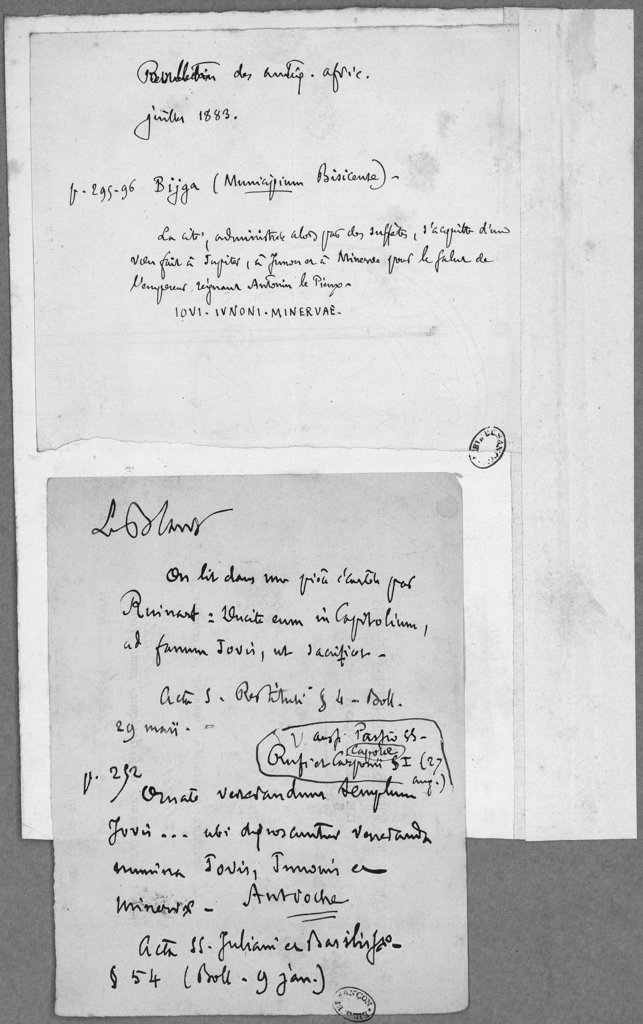 Bulletin des antiq. afric.
juillet 1883.
p. 295-96 Bijga (Municipium Bisicense) -
La cité, administrée alors par des suffètes, s'acquitte d'un
vœu fait à Jupiter, à Junon et à Minerve pour le salut de
l'empereur régnant Antonin le Pieux.
IOVI. IVNONI. MINERVAE.
BIB. DE BESANÇON
Le Blant
On lit dans une pièce écartée par
Ruinart : Ducite eum in Capitolium,
ad fanum Jovis, ut sacrificet -
Acta S. Restituti § 4 - Boll.
29 maii. -
V. aussi Passio SS.
Capitole
Rufi et Carponii § I (27
aug.)
p. 252
Ornate venerandum templum
Jovis... ubi dignoscuntur veneranda
numina Jovis, Junonis et
Minervæ - Antioche
Acta SS. Juliani et Basilissæ -
§ 54 (Boll. 9 jan.)